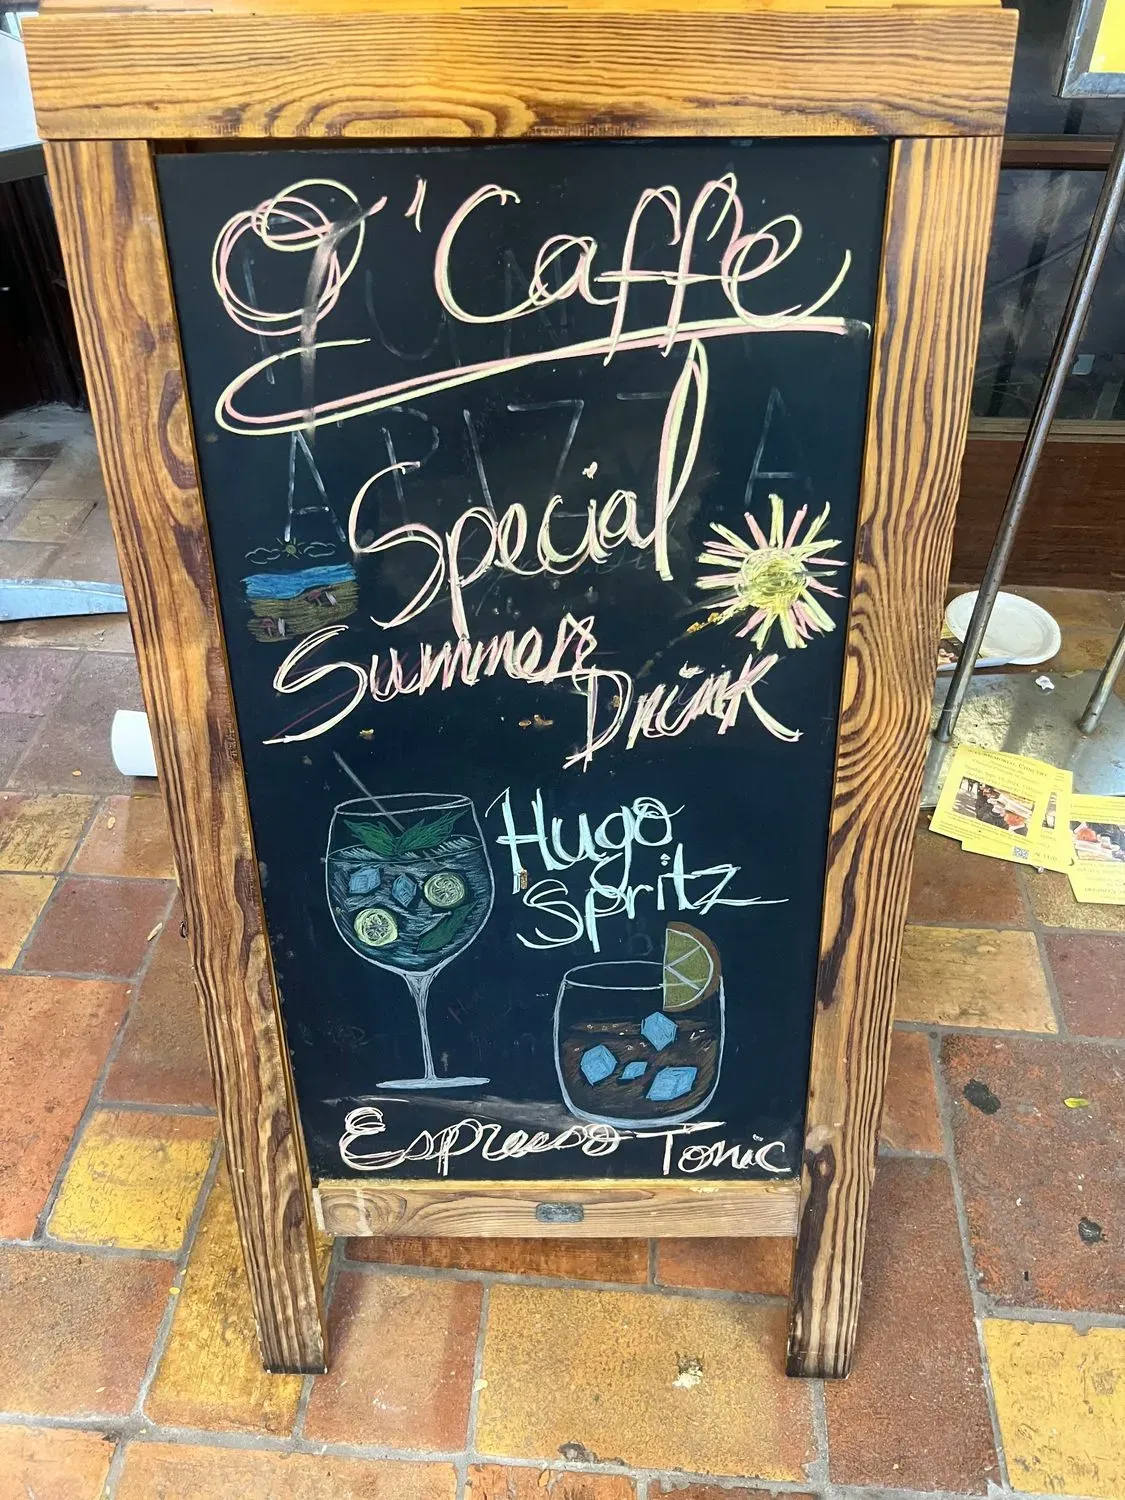 O'Caffe
Special
Summer
Drink
Hugo
Spritz
Espresso Tonic